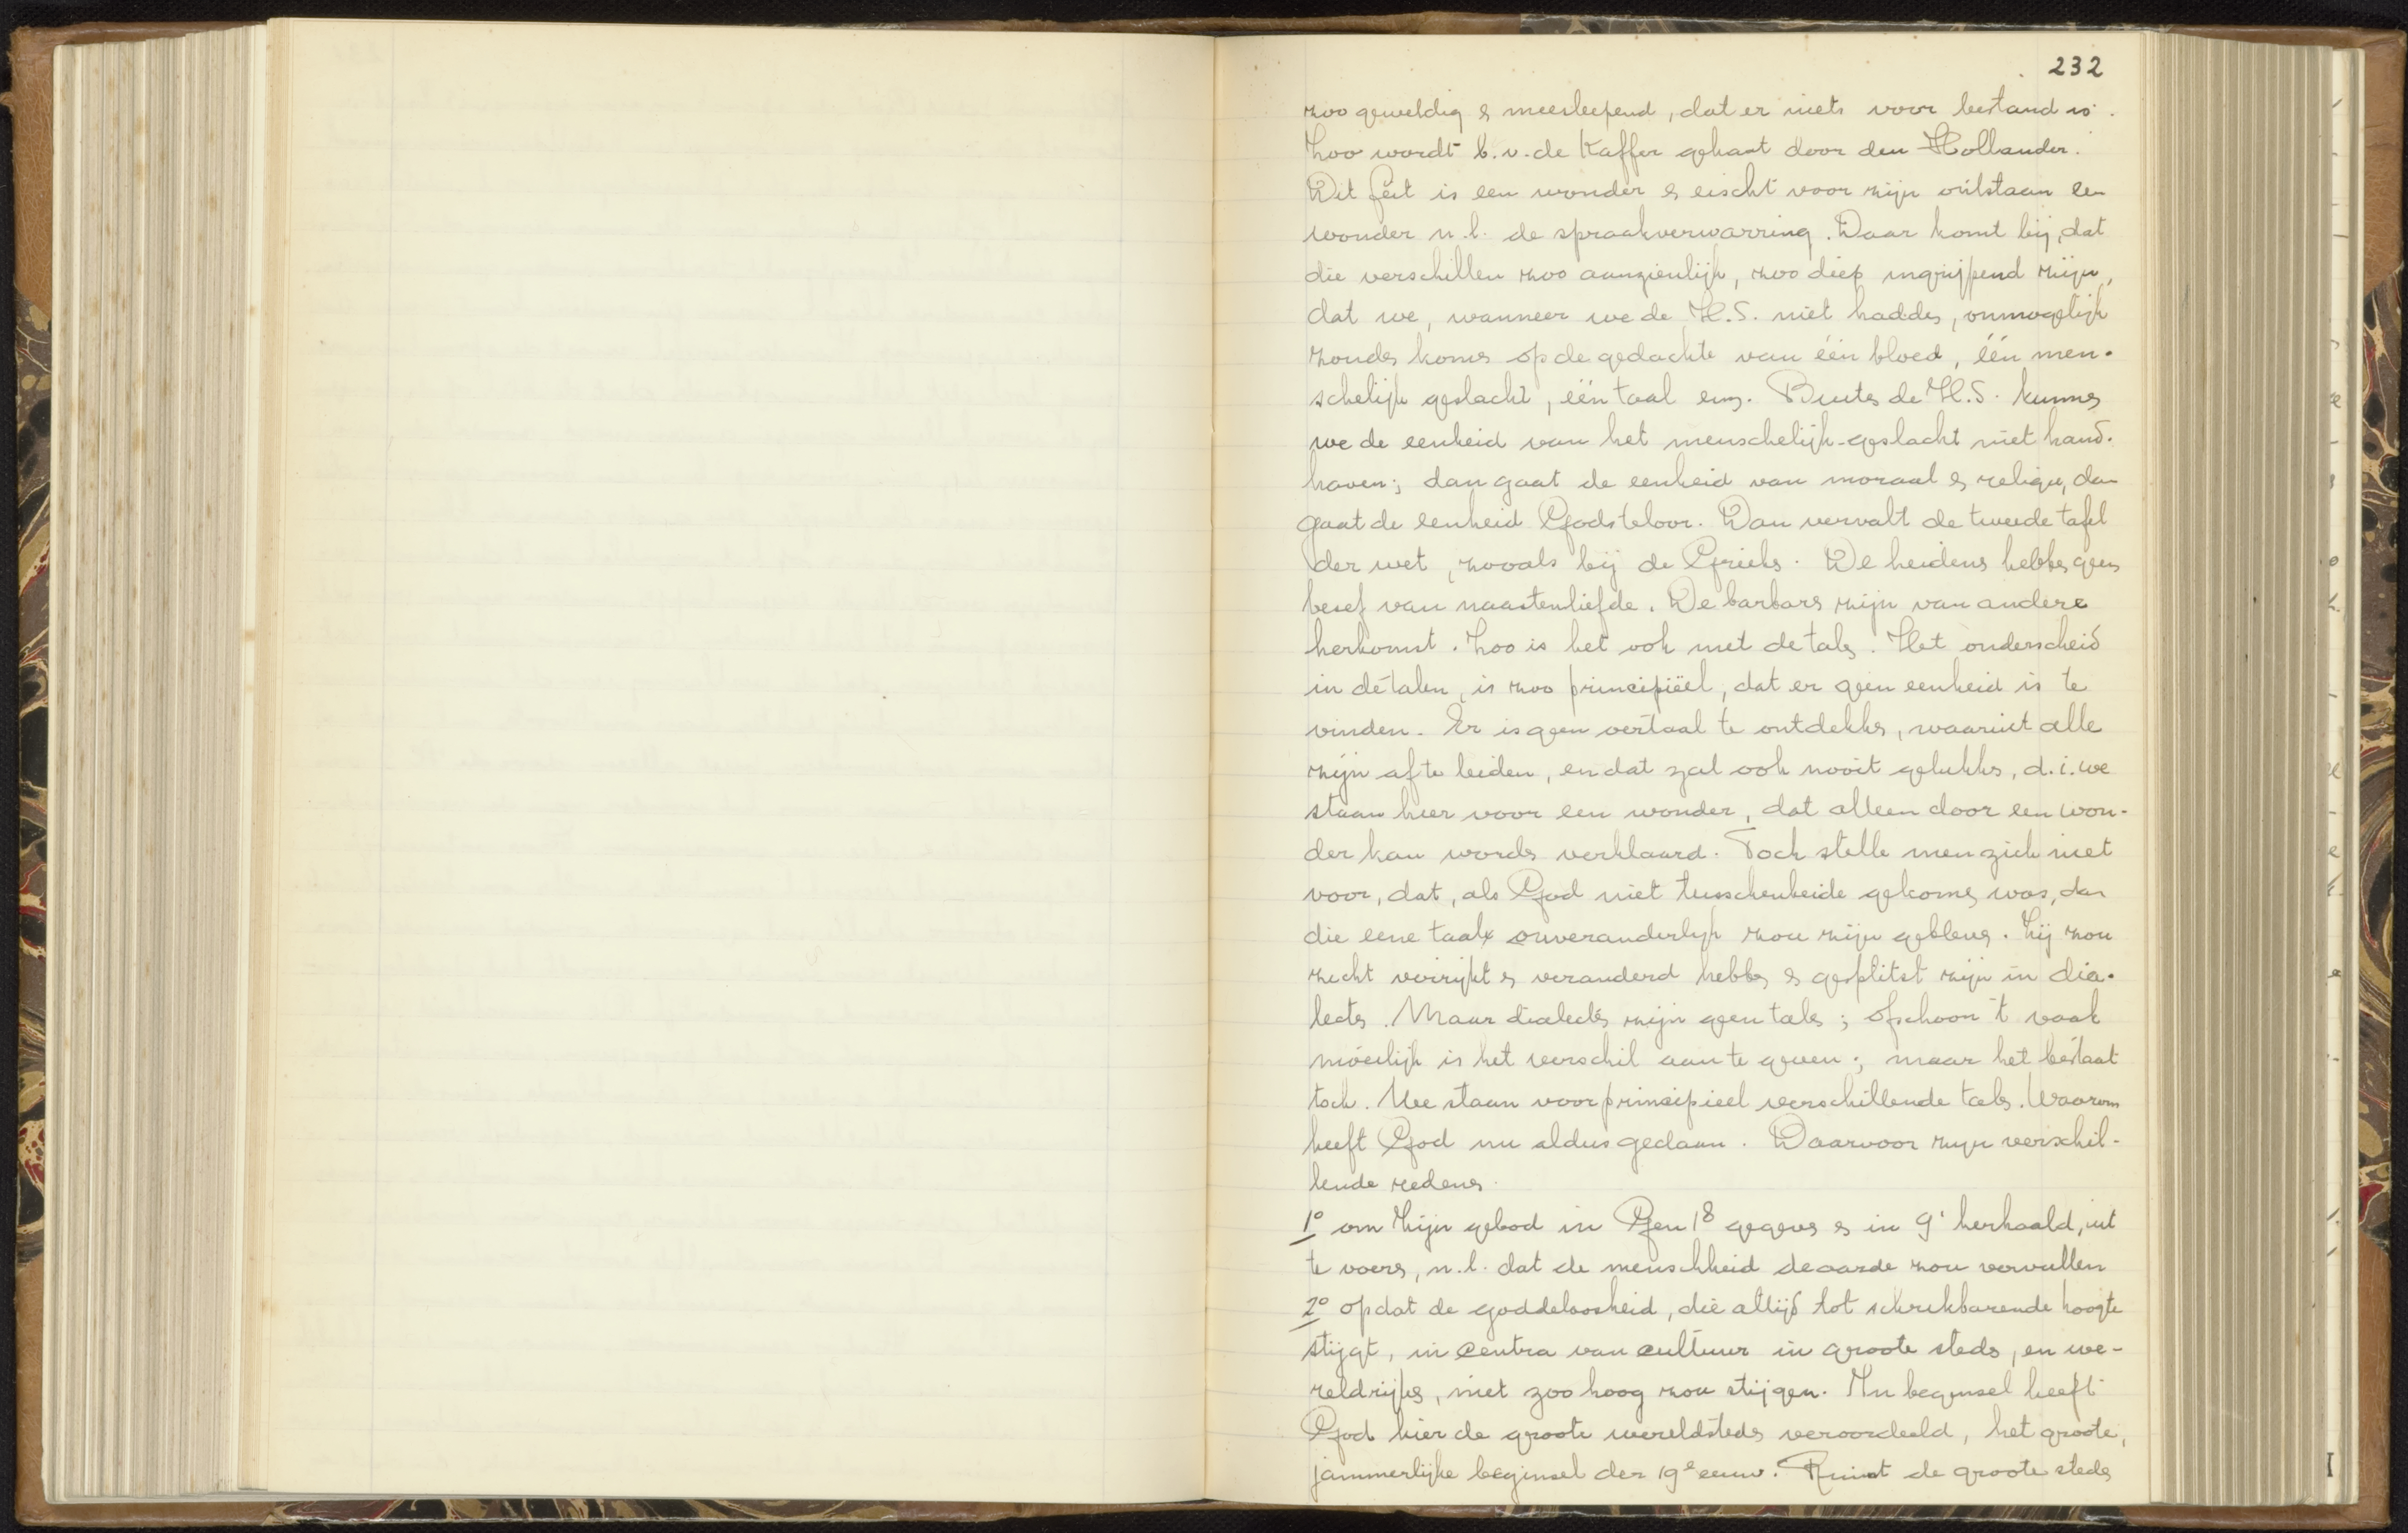 232
zoo geweldig & meesleepend, dat er niets voor bestand is.
Zoo wordt b.v. de Kaffer gehaat door den Hollander.
Dit feit is een wonder & eischt voor zijn ontstaan een
wonder n.l. de spraakverwarring. Daar komt bij, dat
die verschillen zoo aanzienlijk, zoo diep ingrijpend zijn,
dat we, wanneer we de H.S. niet hadden, onmogelijk
zouden komen op de gedachte van één bloed, één men-
schelijk geslacht, één taal enz. Buiten de H.S. kunnen
we de eenheid van het menschelijk-geslacht niet hand-
haven; dan gaat de eenheid van moraal & religie, dan
gaat de eenheid Gods teloor. Dan vervalt de tweede tafel
der wet, zooals bij de Grieken. De heidens hebben geen
besef van naastenliefde. De barbaren zijn van andere
herkomst. Zoo is het ook met de talen. Het onderscheid
in de talen, is zoo principiëel, dat er geen eenheid is te
vinden. Er is geen oertaal te ontdekken, waaruit alle
zijn af te leiden, en dat zal ook nooit gelukken, d.i. we
staan hier voor een wonder, dat alleen door een won-
der kan worden verklaard. Toch stelle men zich niet
voor, dat, als God niet tusschenbeide gekomen was, dan
die eene taal onveranderlijk zou zijn gebleven. Zij zou
zich verrijkt & veranderd hebben & gesplitst zijn in dia-
lecten. Maar dialecten zijn geen talen; ofschoon 't vaak
moeilijk is het verschil aan te geven; maar het bestaat
toch. We staan voor principieel verschillende talen. Waarom
heeft God nu aldus gedaan. Daarvoor zijn verschil-
lende redenen.
1° om Zijn gebod in Gen 1⁸ gegeven & in 9¹ herhaald, uit
te voeren, n.l. dat de menschheid de aarde zou vervullen
2° opdat de goddeloosheid, die altijd tot schrikbarende hoogte
stijgt, in centra van cultuur in groote steden, en we-
reldrijken, niet zoo hoog zou stijgen. In beginsel heeft
God hier de groote wereldsteden veroordeeld, het groote,
jammerlijke beginsel der 19e eeuw. Juist de groote steden